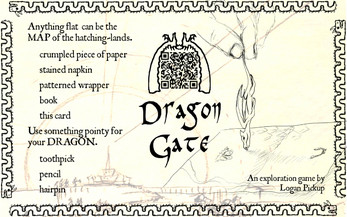 Anything flat can be the
MAP of the hatching-lands.
crumpled piece of paper
stained napkin
patterned wrapper
book
this card
Use something pointy for
your DRAGON.
toothpick
pencil
hairpin
Dragon
Gate
An exploration game by
Logan Pickup